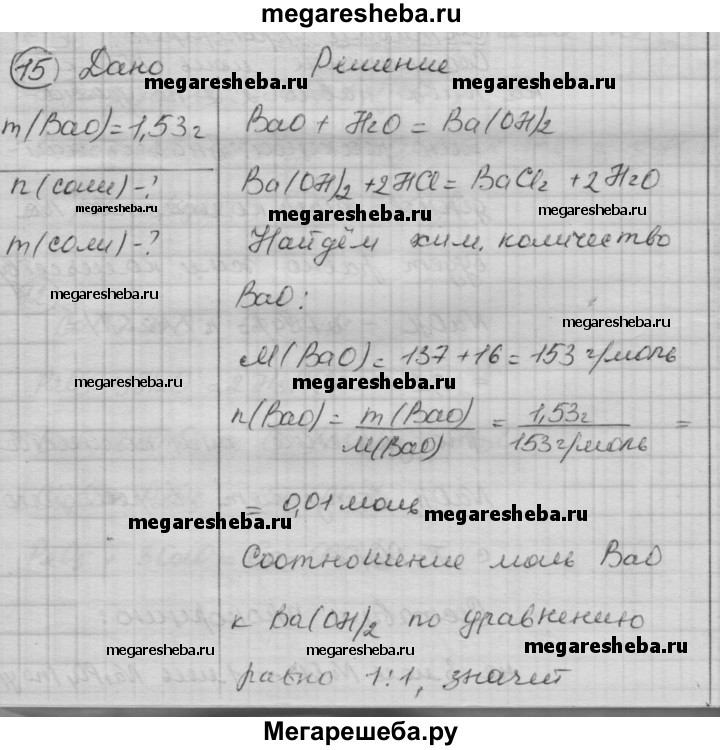 megaresheba.ru
15) Дано Решение
megaresheba.ru megaresheba.ru
m(BaO)=1,53г BaO + H2O = Ba(OH)2
n(соли)-? Ba(OH)2 +2HCl = BaCl2 +2H2O
megaresheba.ru megaresheba.ru megaresheba.ru
m(соли)-? Найдём хим. количество
megaresheba.ru BaO:
megaresheba.ru
M(BaO)= 137+16 = 153 г/моль
megaresheba.ru megaresheba.ru
n(BaO)= m(BaO)/M(BaO) = 1,53г/153г/моль =
= 0,01 моль
megaresheba.ru megaresheba.ru
Соотношение моль BaO
к Ba(OH)2 по уравнению
megaresheba.ru megaresheba.ru
равно 1:1, значит
Мегарешеба.ру